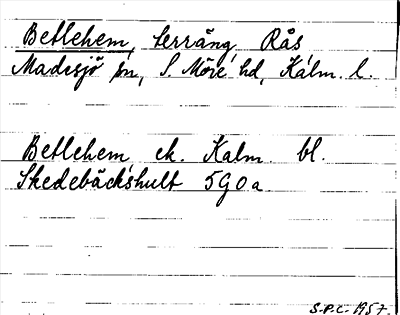 Betlehem, terräng, Rås
Madesjö sn, S. Möre hd, Kalm. l.
Betlehem, ek. Kalm. bl.
Skedebäckshult 5G0a
S.P.C. 1957.